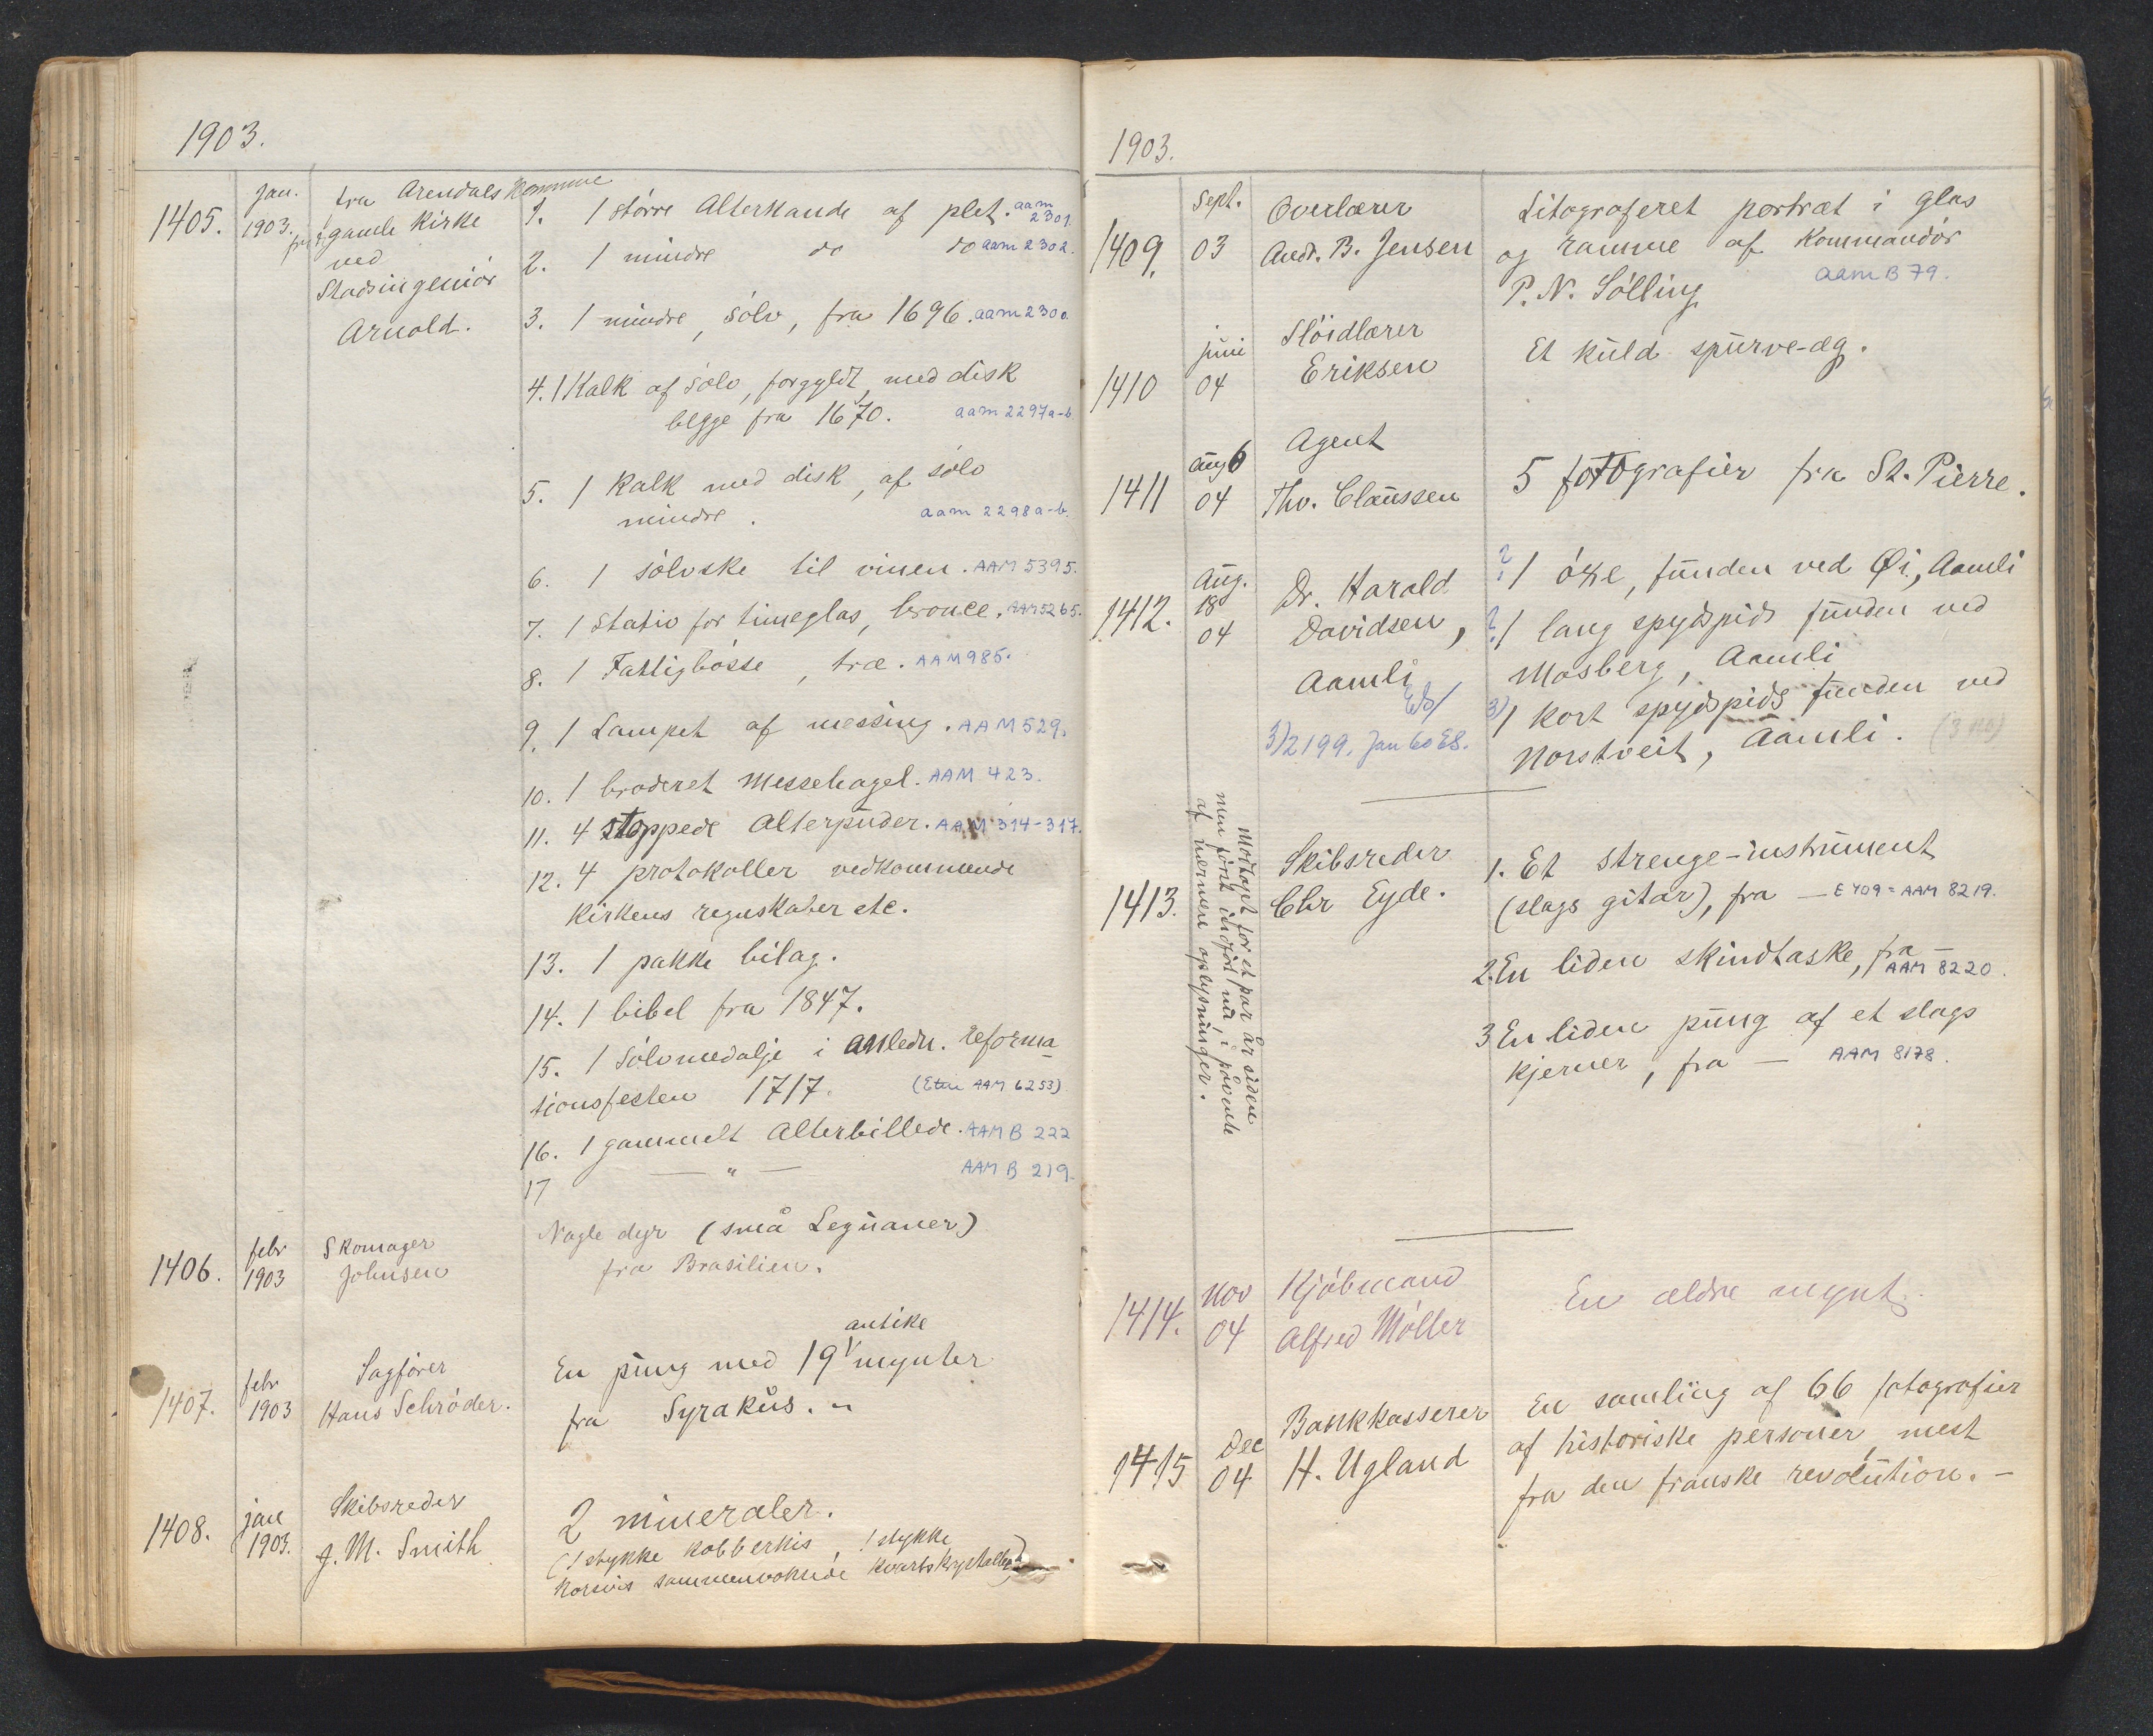 1903.
1405.
Jan.
1903.
fra Arendals Kommune
gamle Kirke
ved
Stadsingeniør
Arnold.
1. 1 større Alterkande af plet. aam 2301.
2. 1 mindre do do aam 2302.
3. 1 mindre, sølv, fra 1696. aam 2300.
4. 1 Kalk af sølv, forgyldt, med disk
begge fra 1670. aam 2297a-b.
5. 1 Kalk med disk, af sølv
mindre. aam 2298a-b.
6. 1 sølvske til vinen. AAM 5395.
7. 1 Stativ for timeglas, bronce. AAM 5265.
8. 1 Fattigbøsse, træ. AAM 985.
9. 1 Lampet af messing. AAM 529.
10. 1 broderet Messehagel. AAM 423.
11. 4 stoppede Alterpuder. AAM 314-317.
12. 4 protokoller vedkommende
Kirkens regnskaber etc.
13. 1 pakke bilag.
14. 1 bibel fra 1847.
15. 1 Sølvmedalje i anledn. reforma-
tionsfesten 1717. (Etui AAM 6253)
16. 1 gammelt Alterbillede. AAM B 222
17 — " — AAM B 219.
1406.
febr
1903
Skomager
Johnsen
Nogle dyr (små Leguaner)
fra Brasilien.
1407.
febr
1903
Sagfører
Hans Schrøder.
antike
En pung med 19 mynter
fra Syrakus.
1408.
jan
1903.
Skibsreder
J. M. Smith
2 mineraler.
(1 stykke kobberkis, 1 stykke
korsvis sammenvoksede kvartskrystaller)
1903.
1409.
Sept.
03
Overlærer
Andr. B. Jensen
Litograferet portræt i glas
og ramme af Kommandør
P. N. Sølling aam B 79.
1410
juni
04
Sløidlærer
Eriksen
Et kuld spurve-æg.
1411
aug 6
04
Agent
Thv. Claussen
5 fotografier fra St. Pierre.
1412.
Aug.
18
04
Dr. Harald
Davidsen,
Aamli
3) 2199. Jan 60 ES.
? 1 øxe, funden ved Øi, Aamli
? 1 lang spydspids funden ved
Mosberg, Aamli
3) 1 kort spydspids funden ved
Norstveit, Aamli.
1413.
Modtaget for et par år siden
men først indført nu, i påvente
af nærmere oplysninger.
Skibsreder
Chr Eyde.
1. Et strenge-instrument
(slags gitar), fra — E 409 = AAM 8219.
2. En liden skindtaske, fra —
AAM 8220.
3 En liden pung af et slags
kjerner, fra — AAM 8178.
1414.
Nov
04
Kjøbmand
Alfred Møller
En ældre mynt.
1415
Dec
04
Bankkasserer
H. Ugland
En samling af 66 fotografier
af historiske personer, mest
fra den franske revolution. —